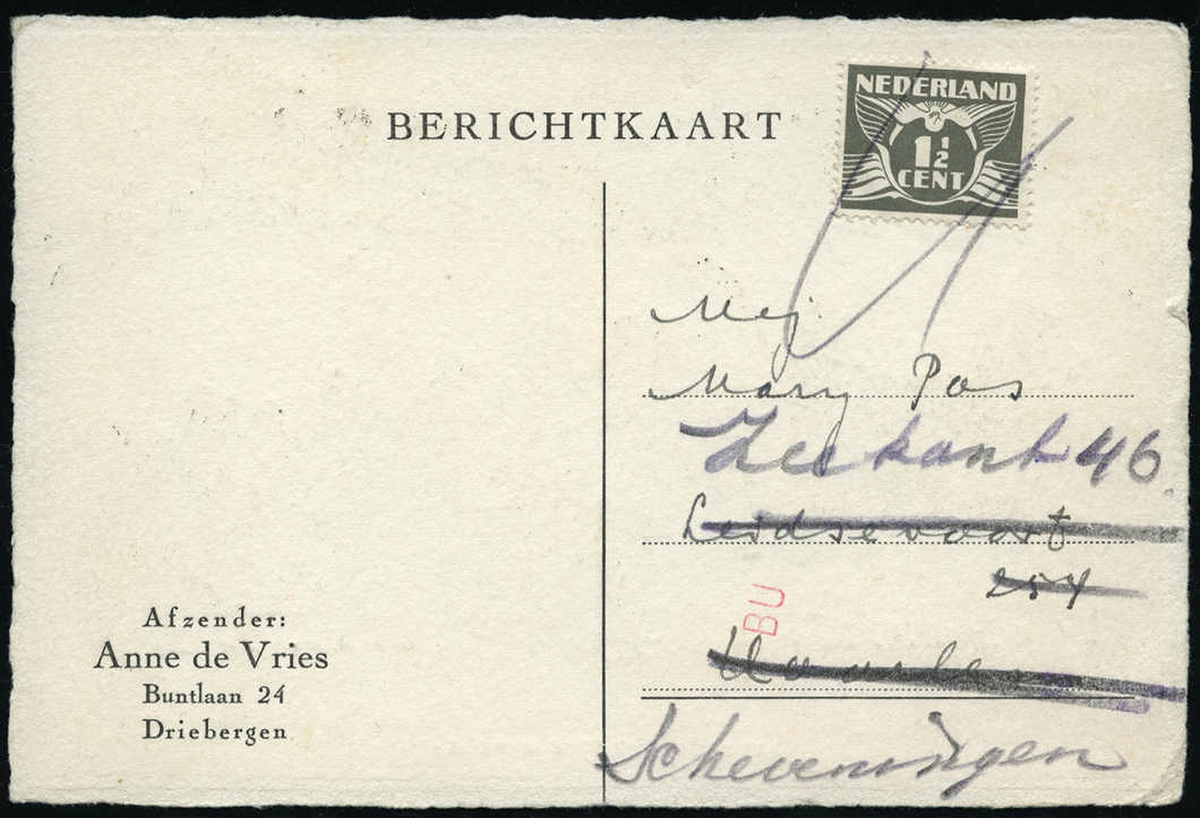 BERICHTKAART
NEDERLAND
1 1/2
CENT
Mej.
Mary Pos
Zeekant 46
Leidsevaart
254
BU
Haarlem
Scheveningen
Afzender:
Anne de Vries
Buntlaan 24
Driebergen